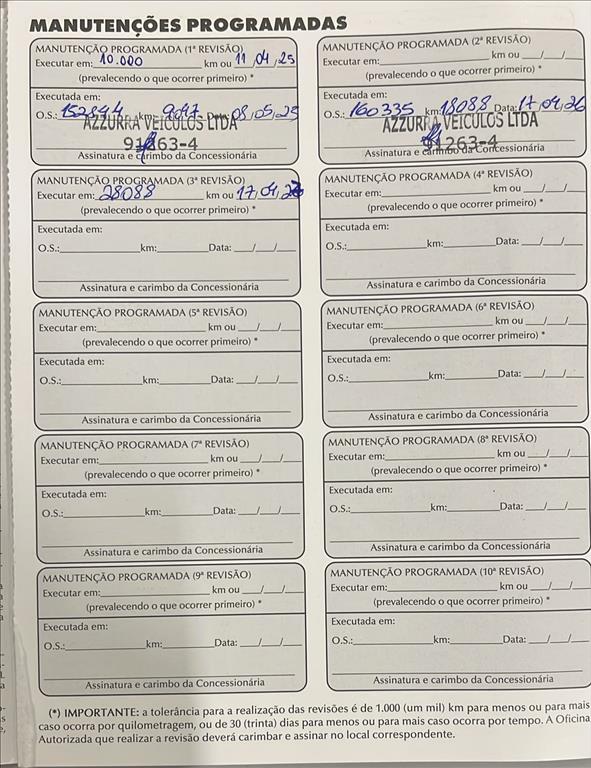 MANUTENÇÕES PROGRAMADAS
MANUTENÇÃO PROGRAMADA (1ª REVISÃO)
Executar em: 10.000 km ou 11/04/25
(prevalecendo o que ocorrer primeiro) *
Executada em:
O.S.: 152844 km: 9097 Data: 08/05/25
AZZURRA VEICULOS LTDA
91263-4
Assinatura e carimbo da Concessionária
MANUTENÇÃO PROGRAMADA (2ª REVISÃO)
Executar em:____ km ou __/__/__
(prevalecendo o que ocorrer primeiro) *
Executada em:
O.S.: 160335 km: 18088 Data: 17/04/26
AZZURRA VEICULOS LTDA
91263-4
Assinatura e carimbo da Concessionária
MANUTENÇÃO PROGRAMADA (3ª REVISÃO)
Executar em: 28088 km ou 17/04/27
(prevalecendo o que ocorrer primeiro) *
Executada em:
O.S.:____km:____Data: __/__/__
Assinatura e carimbo da Concessionária
MANUTENÇÃO PROGRAMADA (4ª REVISÃO)
Executar em:____ km ou __/__/__
(prevalecendo o que ocorrer primeiro) *
Executada em:
O.S.:____km:____Data: __/__/__
Assinatura e carimbo da Concessionária
MANUTENÇÃO PROGRAMADA (5ª REVISÃO)
Executar em:____ km ou __/__/__
(prevalecendo o que ocorrer primeiro) *
Executada em:
O.S.:____km:____Data: __/__/__
Assinatura e carimbo da Concessionária
MANUTENÇÃO PROGRAMADA (6ª REVISÃO)
Executar em:____ km ou __/__/__
(prevalecendo o que ocorrer primeiro) *
Executada em:
O.S.:____km:____Data: __/__/__
Assinatura e carimbo da Concessionária
MANUTENÇÃO PROGRAMADA (7ª REVISÃO)
Executar em:____ km ou __/__/__
(prevalecendo o que ocorrer primeiro) *
Executada em:
O.S.:____km:____Data: __/__/__
Assinatura e carimbo da Concessionária
MANUTENÇÃO PROGRAMADA (8ª REVISÃO)
Executar em:____ km ou __/__/__
(prevalecendo o que ocorrer primeiro) *
Executada em:
O.S.:____km:____Data: __/__/__
Assinatura e carimbo da Concessionária
MANUTENÇÃO PROGRAMADA (9ª REVISÃO)
Executar em:____ km ou __/__/__
(prevalecendo o que ocorrer primeiro) *
Executada em:
O.S.:____km:____Data: __/__/__
Assinatura e carimbo da Concessionária
MANUTENÇÃO PROGRAMADA (10ª REVISÃO)
Executar em:____ km ou __/__/__
(prevalecendo o que ocorrer primeiro) *
Executada em:
O.S.:____km:____Data: __/__/__
Assinatura e carimbo da Concessionária
(*) IMPORTANTE: a tolerância para a realização das revisões é de 1.000 (um mil) km para menos ou para mais
caso ocorra por quilometragem, ou de 30 (trinta) dias para menos ou para mais caso ocorra por tempo. A Oficina
Autorizada que realizar a revisão deverá carimbar e assinar no local correspondente.